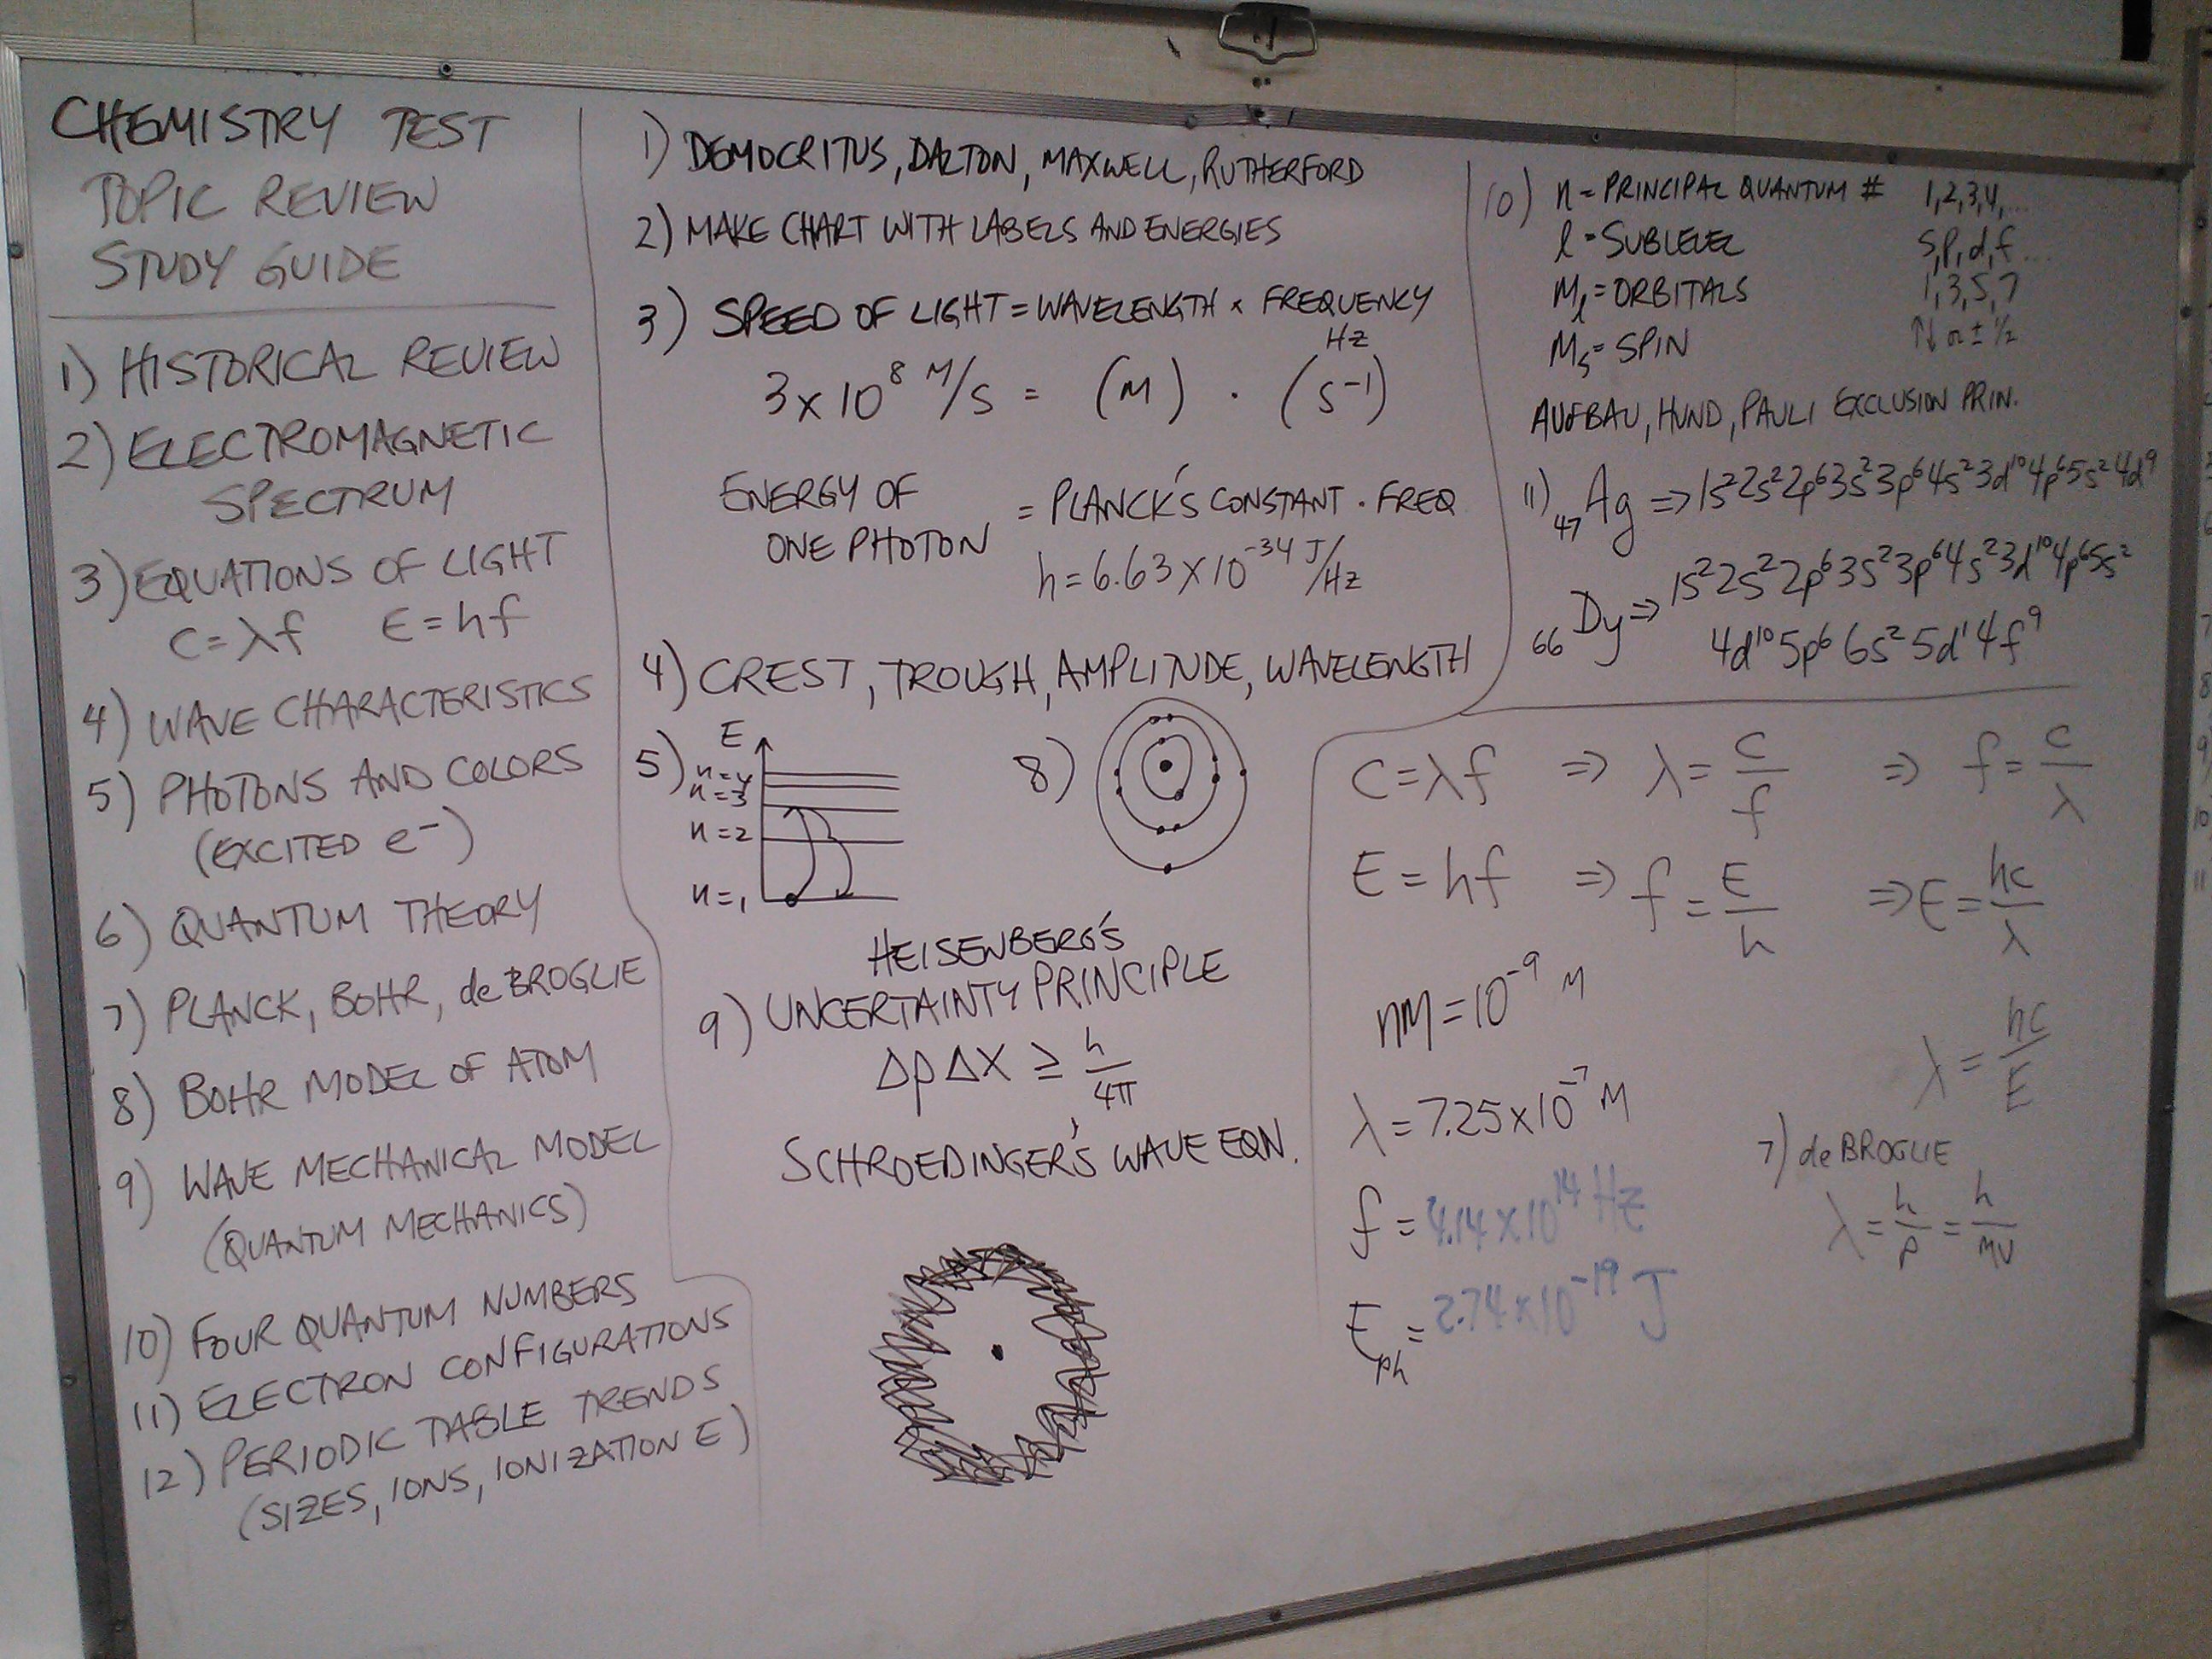 CHEMISTRY TEST
TOPIC REVIEW
STUDY GUIDE
1) HISTORICAL REVIEW
2) ELECTROMAGNETIC
SPECTRUM
3) EQUATIONS OF LIGHT
C=λf E=hf
4) WAVE CHARACTERISTICS
5) PHOTONS AND COLORS
(EXCITED e⁻)
6) QUANTUM THEORY
7) PLANCK, BOHR, deBROGLIE
8) BOHR MODEL OF ATOM
9) WAVE MECHANICAL MODEL
(QUANTUM MECHANICS)
10) FOUR QUANTUM NUMBERS
11) ELECTRON CONFIGURATIONS
12) PERIODIC TABLE TRENDS
(SIZES, IONS, IONIZATION E)
1) DEMOCRITUS, DALTON, MAXWELL, RUTHERFORD
2) MAKE CHART WITH LABELS AND ENERGIES
3) SPEED OF LIGHT = WAVELENGTH × FREQUENCY
Hz
3×10⁸ M/S = (M) · (S⁻¹)
ENERGY OF
ONE PHOTON = PLANCK'S CONSTANT · FREQ
h=6.63×10⁻³⁴ J/Hz
4) CREST, TROUGH, AMPLITUDE, WAVELENGTH
5) E
n=4
n=3
n=2
n=1
8)
HEISENBERG'S
9) UNCERTAINTY PRINCIPLE
ΔpΔX ≥ h/4π
SCHROEDINGER'S WAVE EQN.
10) n=PRINCIPAL QUANTUM # 1,2,3,4,...
l=SUBLEVEL s,p,d,f...
Ml=ORBITALS 1,3,5,7
Ms=SPIN ↑↓ or ±1/2
AUFBAU, HUND, PAULI EXCLUSION PRIN.
11) ₄₇Ag ⇒ 1s²2s²2p⁶3s²3p⁶4s²3d¹⁰4p⁶5s²4d⁹
₆₆Dy ⇒ 1s²2s²2p⁶3s²3p⁶4s²3d¹⁰4p⁶5s²
4d¹⁰5p⁶6s²5d¹4f⁹
C=λf ⇒ λ=C/f ⇒ f=C/λ
E=hf ⇒ f=E/h ⇒ E=hc/λ
nM=10⁻⁹ M
λ=hc/E
λ=7.25×10⁻⁷ M
f=4.14×10¹⁴ Hz
Eph=2.74×10⁻¹⁹ J
7) deBROGLIE
λ=h/p=h/mv